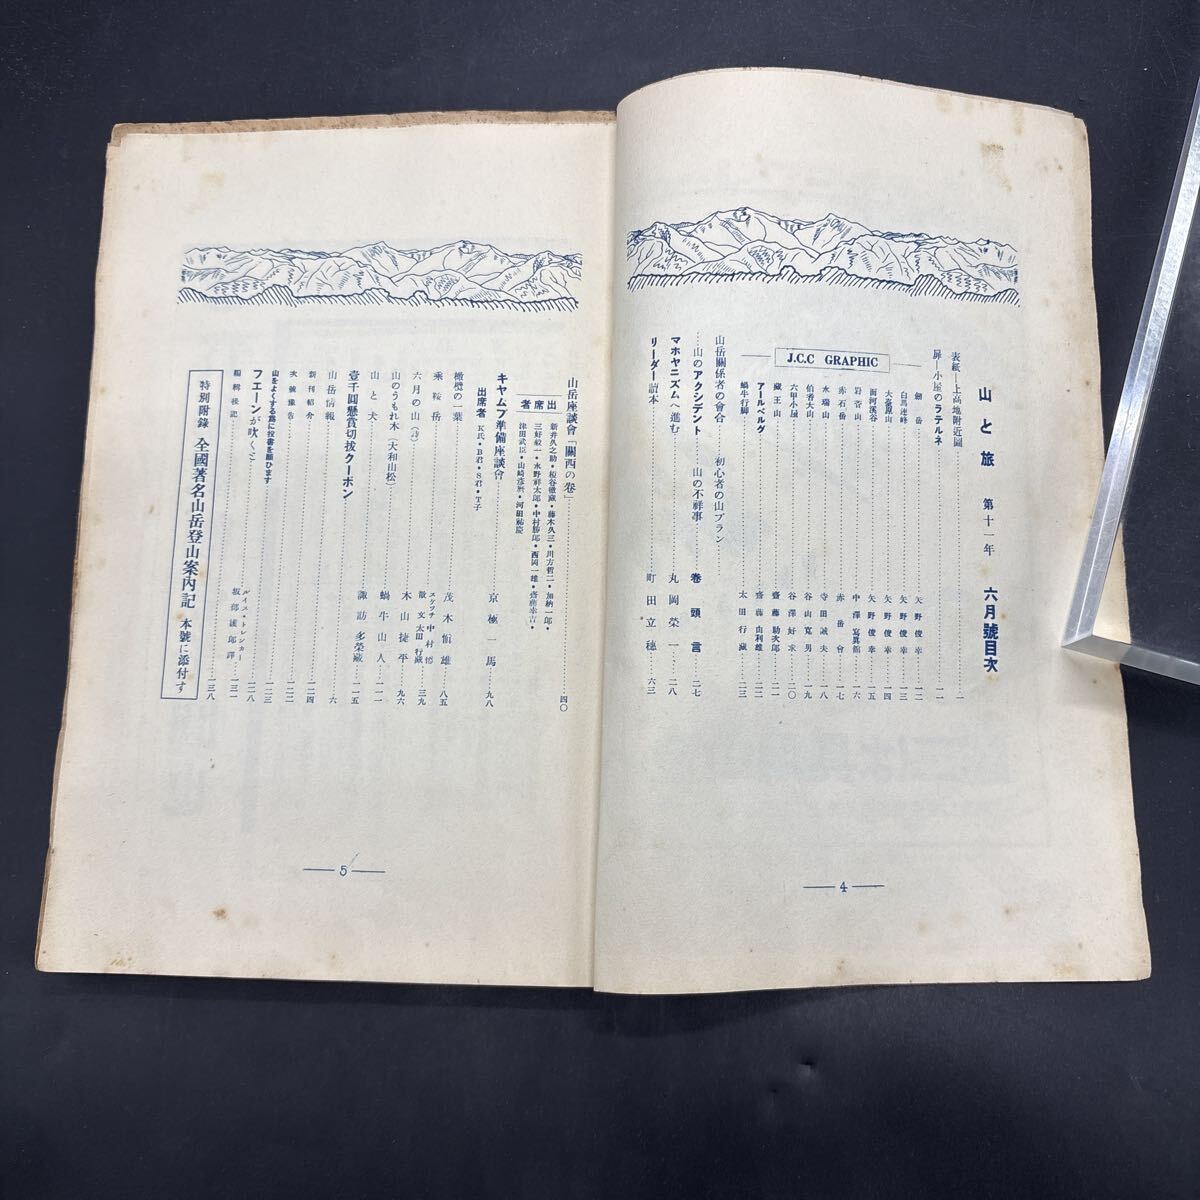 山と旅 第十一年 六月號目次
表紙―上高地附近圖 一
扉―小屋のラテルネ 一一
J.C.C GRAPHIC
劍岳 矢野俊幸 一二
白馬連峰 矢野俊幸 一三
大菩薩山 矢野俊幸 一四
面河溪谷 矢野俊幸 一五
岩菅山 中澤寫眞館 一六
赤石岳 赤岳會 一七
水瑞山 寺田誠夫 一八
伯耆大山 谷山寬男 一九
六甲小屋 谷澤好求 二〇
藏王山 齋藤助次郎 二一
アールベルグ 齋藤由利雄 二二
蝸牛行脚 太田行藏 二三
山岳關係者の會合 初心者の山プラン
山のアクシデント 山の不祥事 卷頭言 二七
マホヤニズムへ進む 丸岡榮一 二八
リーダー讀本 町田立穗 六三
4
山岳座談會「關西の卷」 四〇
出席者
新井久之助・榎谷徹藏・藤木久三・川方哲二・加納一郎・
三好毅一・水野祥太郎・中村勝郎・西岡一雄・齋藤幸吉・
津田武臣・山崎彦麿・河田祐慶
キヤムプ準備座談會 京極一馬 九八
出席者 K氏・B君・S君・T子
橄欖の一葉 茂木愼雄 八五
乘鞍岳 スケツチ 中村 散文 太田行藏 三九
六月の山(詩) 木山捷平 九六
山のうもれ木(大和山松)
山と犬 蝸牛山人 一一一
壹千圓懸賞切拔クーポン 諏訪多榮藏 一一五
山岳情報 六
新刊紹介 一二四
次號豫告 一二二
山をよくする爲に投書を願ひます 一二三
フエーンが吹くと ルイス・トレンカー 坂部護郎譯 一二八
編輯後記 一三一
一三八
特別附錄 全國著名山岳登山案內記 本號に添付す
5